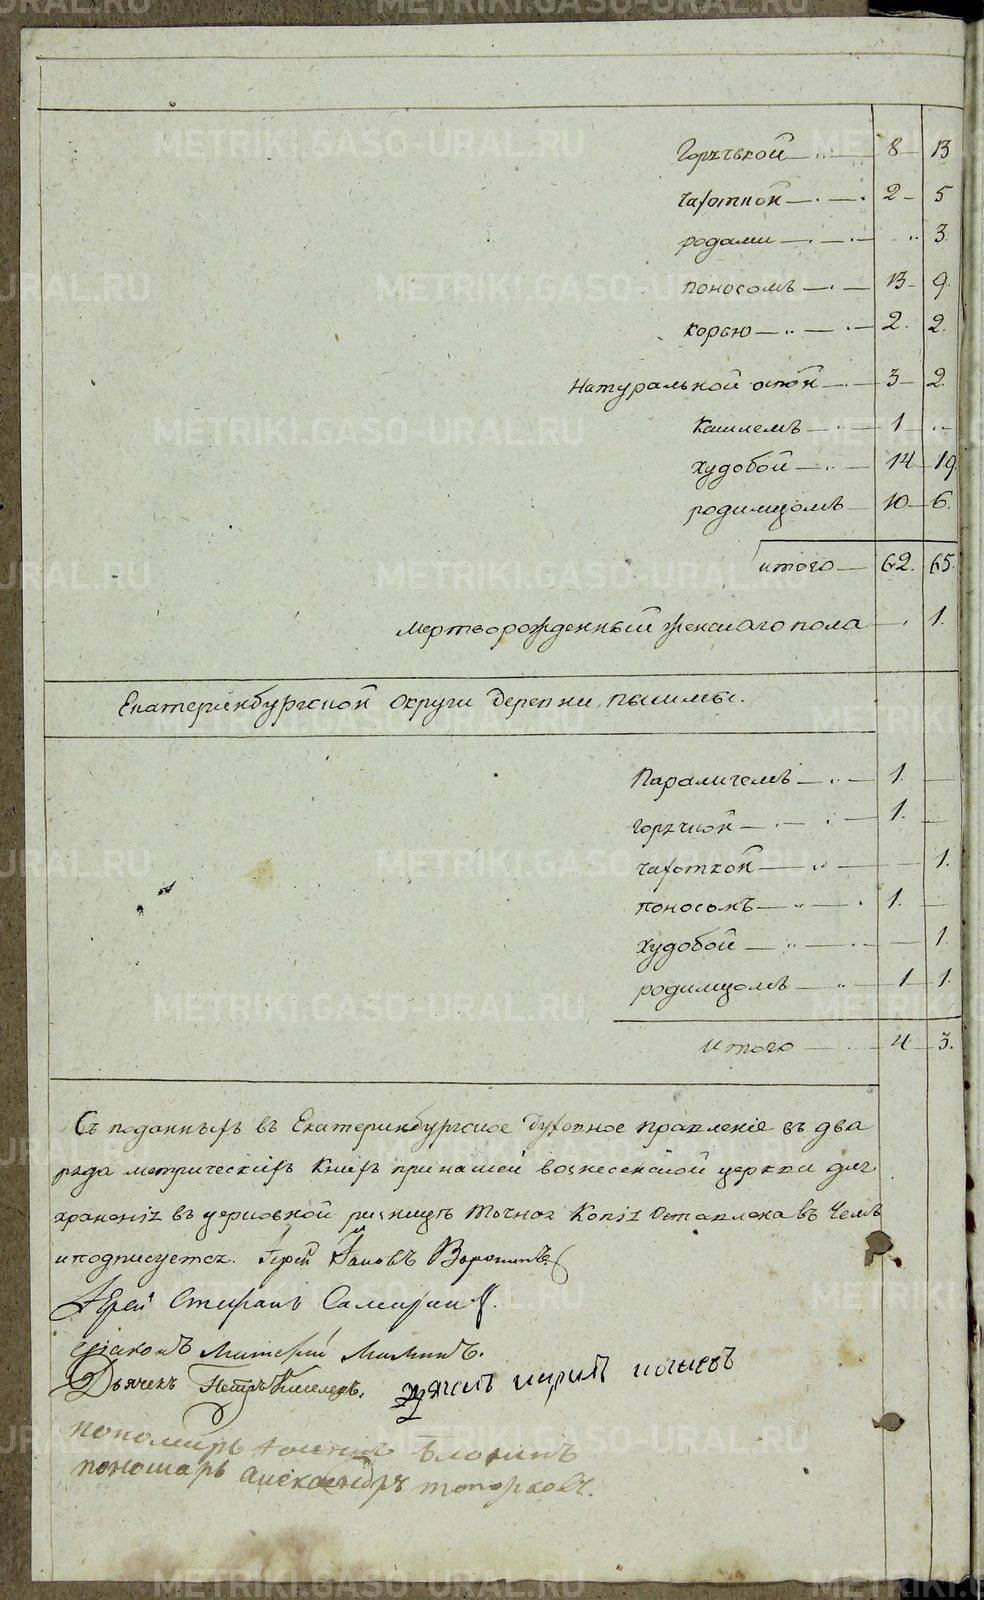 METRIKI.GASO-URAL.RU
Горѣчкой 8 13
чахоткой 2 5
родами 3
поносомъ 13 9
корью 2 2
Натуральной оспой 3 2
Кашлемъ 1
худобой 14 19
родимцомъ 10 6
итого 62. 65.
Мертворожденный женскаго пола 1.
Екатеринбургской округи деревни пышмы.
Параличемъ 1.
горѣчкой 1.
чахоткой 1.
поносомъ 1.
худобой 1.
родимцомъ 1 1.
Итого 4 3.
Съ поданныхъ въ Екатеринбургское духовное правленіе въ два
ряда метрическихъ книгъ при нашей вознесенской церкви для
храненія въ церковной ризницѣ точная копія оставлена въ чемъ
и подписуемся. Іерей Іаковъ Воронинъ
Іерей Стефанъ
діаконъ
Дьячекъ Петръ Киселевъ.
пономарь
пономарь александръ топорковъ.